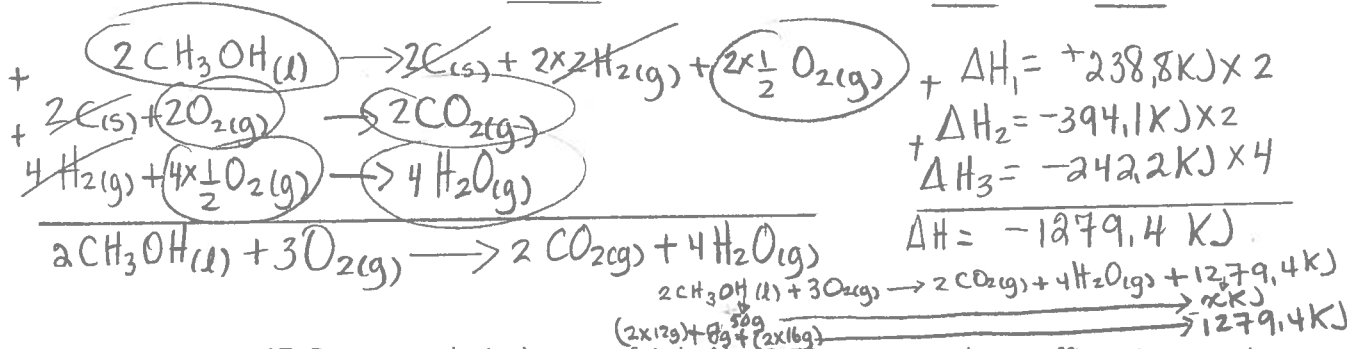 + 2CH₃OH(l) → 2C(s) + 2×2H₂(g) + 2×1/2 O₂(g) + ΔH₁ = +238,8KJ×2
+ 2C(s) + 2O₂(g) → 2CO₂(g) + ΔH₂ = -394,1KJ×2
4H₂(g) + 4×1/2 O₂(g) → 4H₂O(g) ΔH₃ = -242,2KJ×4
2CH₃OH(l) + 3O₂(g) → 2CO₂(g) + 4H₂O(g) ΔH = -1279,4 KJ
2CH₃OH(l) + 3O₂(g) → 2CO₂(g) + 4H₂O(g) + 1279,4KJ
50g → xKJ
(2×12g)+8g+(2×16g) → -1279,4KJ